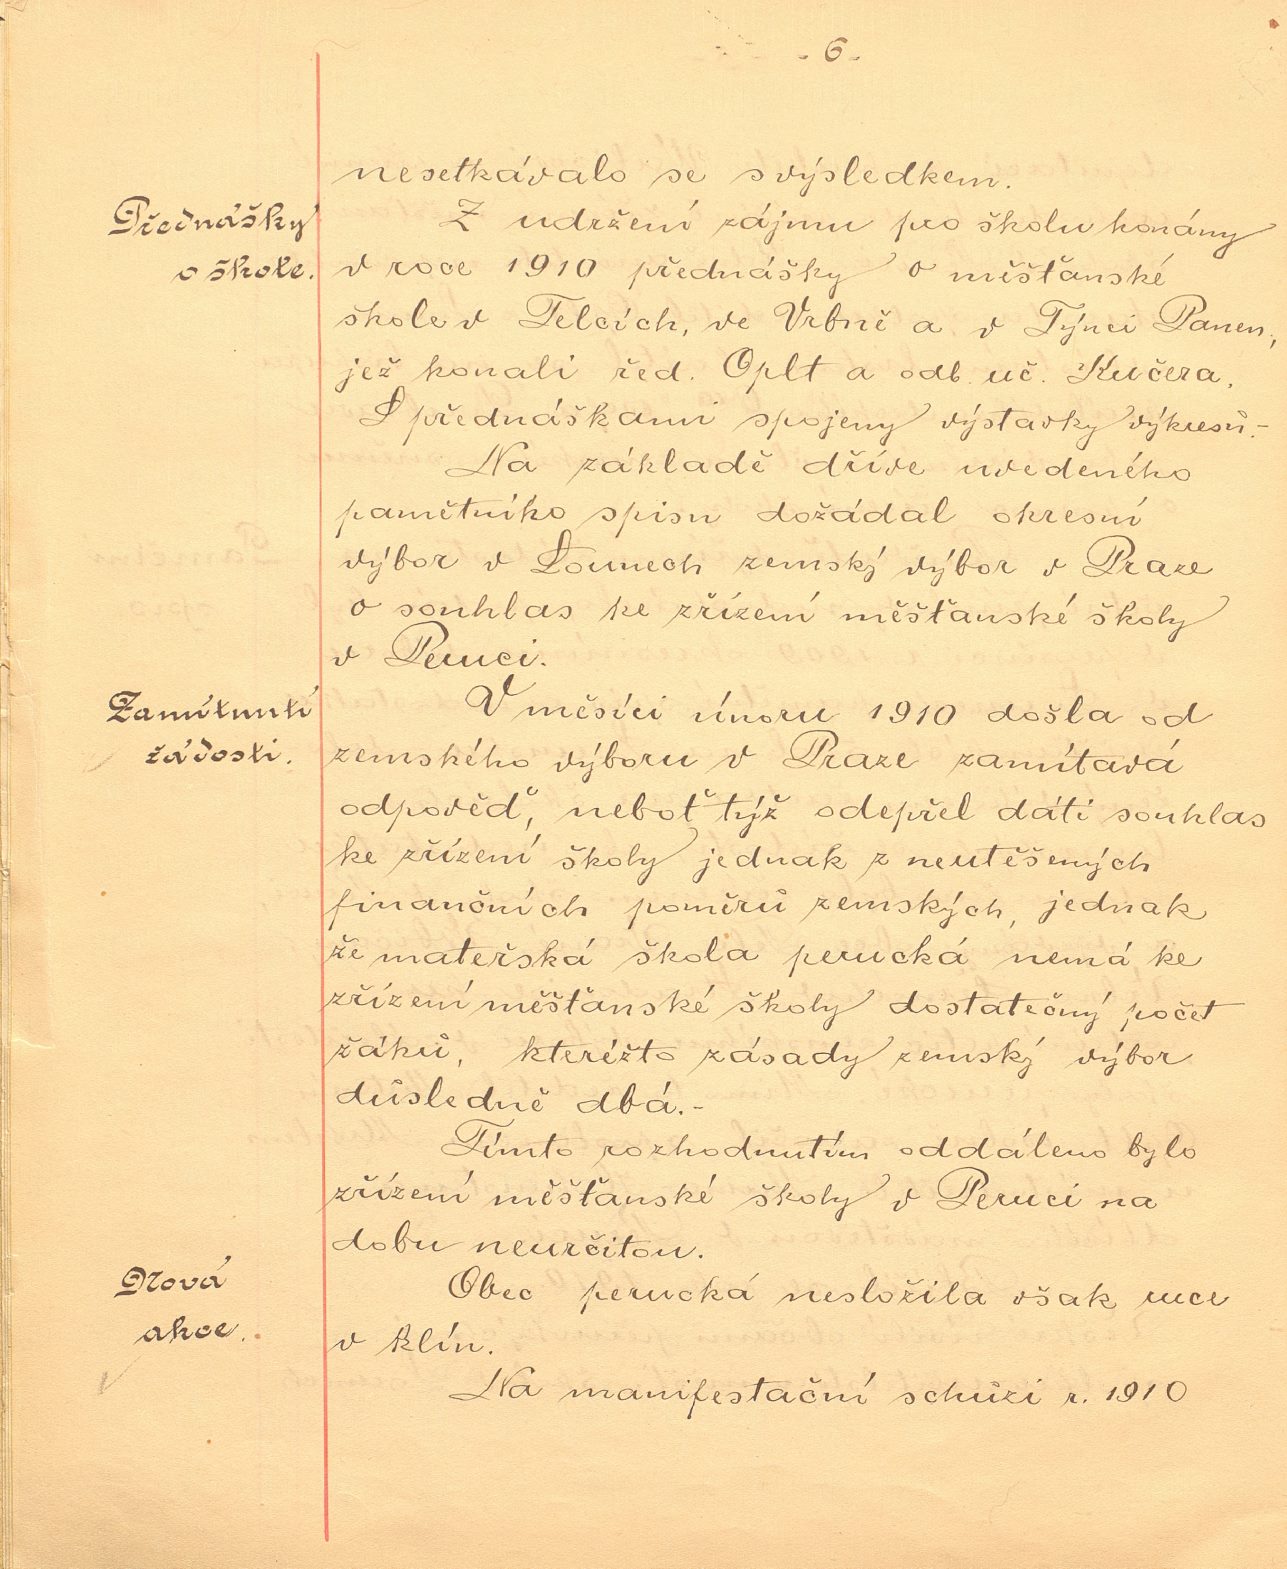 - 6 -
nesetkávalo se s výsledkem.
Přednášky
Z udržení zájmu pro školu konány
o škole.
v roce 1910 přednášky o měšťanské
škole v Telcích, ve Vrbně a v Týnci Panen.,
jež konali řed. Oplt a odb. uč. Kučera.
S přednáškami spojeny výstavky výkresů.-
Na základě dříve uvedeného
pamětního spisu dožádal okresní
výbor v Lounech zemský výbor v Praze
o souhlas ke zřízení měšťanské školy
v Peruci.
Zamítnutí
V měsíci únoru 1910 došla od
žádosti.
zemského výboru v Praze zamítavá
odpověď, neboť týž odepřel dáti souhlas
ke zřízení školy jednak z neutěšených
finančních poměrů zemských, jednak
že mateřská škola perucká nemá ke
zřízení měšťanské školy dostatečný počet
žáků, kteréžto zásady zemský výbor
důsledně dbá.-
Tímto rozhodnutím oddáleno bylo
zřízení měšťanské školy v Peruci na
dobu neurčitou.
Nová
Obec perucká nesložila však ruce
akce.
v klín.
Na manifestační schůzi r. 1910